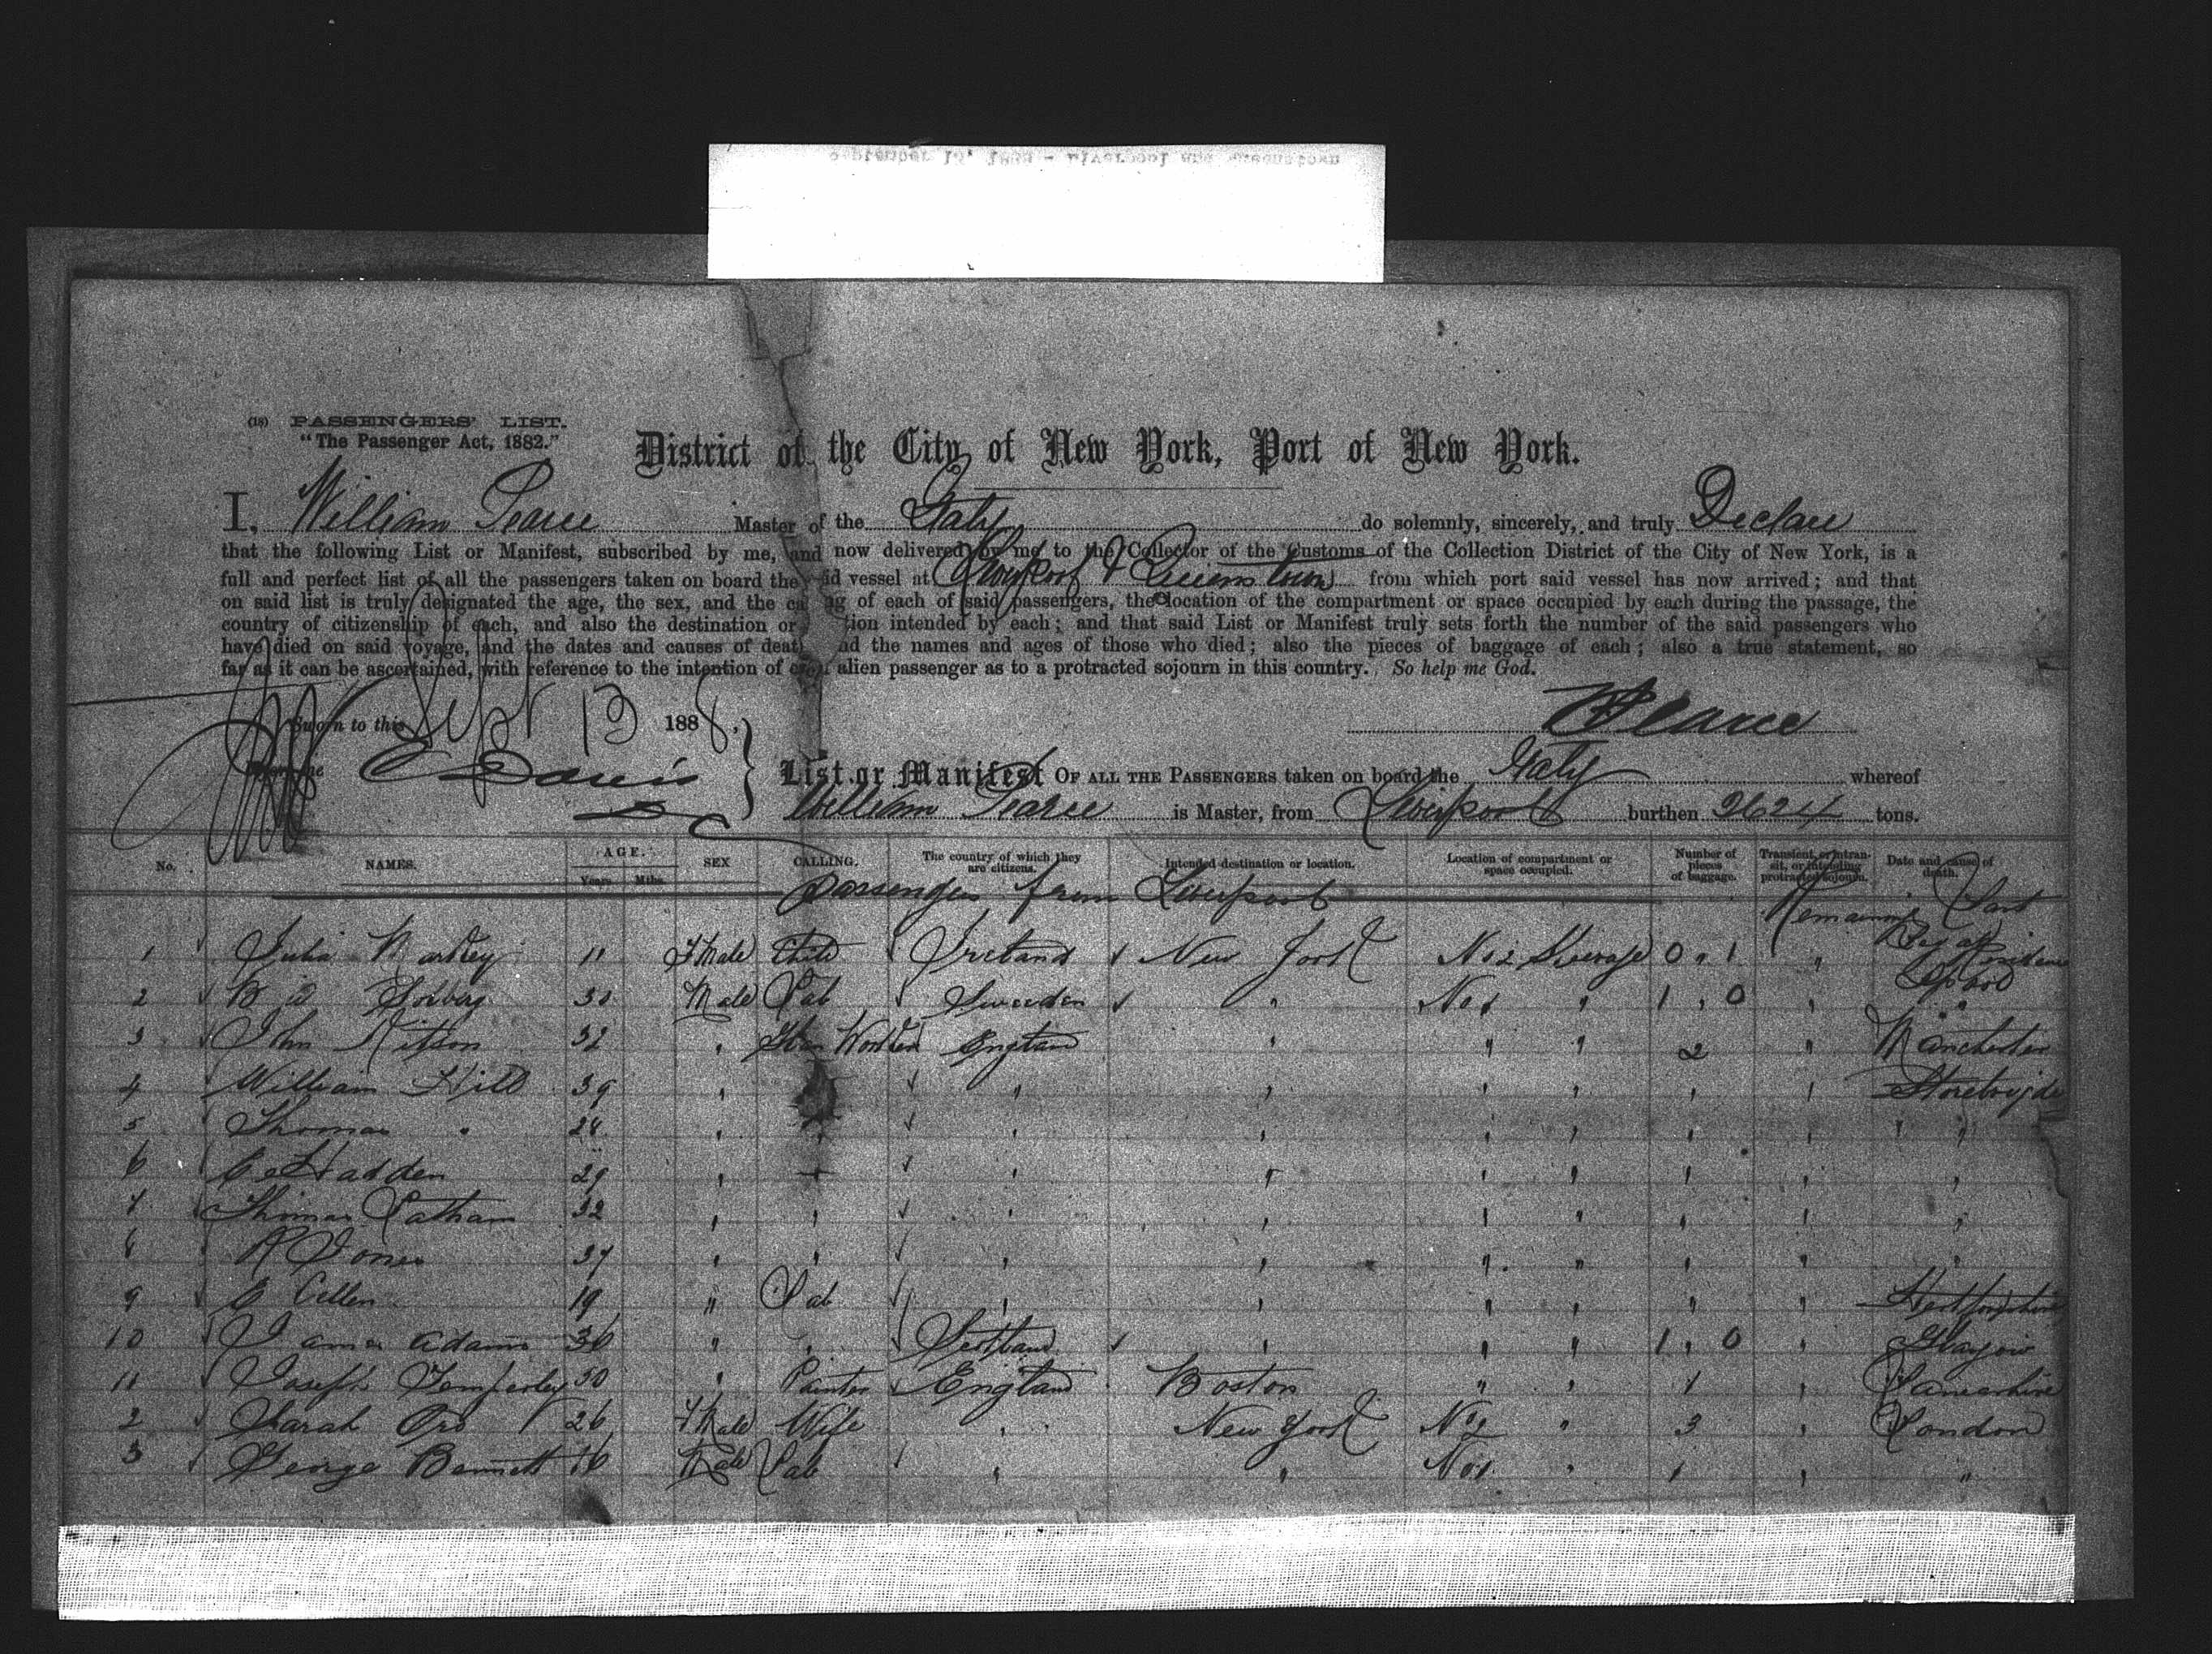 (18) PASSENGERS' LIST.
"The Passenger Act, 1882."
District of the City of New York, Port of New York.
I, William Pearce Master of the Italy do solemnly, sincerely, and truly Declare
that the following List or Manifest, subscribed by me, and now delivered by me to the Collector of the Customs of the Collection District of the City of New York, is a
full and perfect list of all the passengers taken on board the said vessel at Liverpool & Queenstown from which port said vessel has now arrived; and that
on said list is truly designated the age, the sex, and the ca ng of each of said passengers, the location of the compartment or space occupied by each during the passage, the
country of citizenship of each, and also the destination or tion intended by each; and that said List or Manifest truly sets forth the number of the said passengers who
have died on said voyage, and the dates and causes of death nd the names and ages of those who died; also the pieces of baggage of each; also a true statement, so
far as it can be ascertained, with reference to the intention of each alien passenger as to a protracted sojourn in this country. So help me God.
Sworn to this Sept 13 1888. Pearce
List or Manifest OF ALL THE PASSENGERS taken on board the Italy whereof
William Pearce is Master, from Liverpool burthen 2624 tons.
No. NAMES. AGE. Years Mths. SEX CALLING. The country of which they are citizens. Intended destination or location. Location of compartment or space occupied. Number of pieces of baggage. Transient, or in transit, or intending protracted sojourn. Date and cause of death.
Passengers from Liverpool
Remaining Last
1 Julia 11 F Male Child Ireland New York No 2 Steerage 0 " 1 "
2 Solberg 30 Male Lab Sweeden " No 1 " 1 " 0 " "
3 John Kitson 32 " England " " " 2 " Manchester
4 William Hill 39 " " " " " " "
5 Thomas " 28 " " " " " " " " "
6 Hadden 29 " " " " " " " " "
7 Thomas Latham 32 " " " " " " " " "
8 R Jones 37 " " " " " " " " "
9 E 19 " Lab " " " " " " Hertfordshire
10 James Adams 36 " " Scotland " " " 1 " 0 " Glasgow
11 Joseph Temperley 50 " Painter England Boston " " 1 " Lancashire
2 Sarah Ord 26 F Male Wife " New York No 2 " 3 " London
3 George Bennett 16 Male Lab " " No 1 " 1 " "